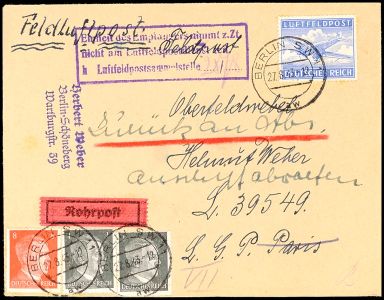 Feldluftpost
Einheit des Empfängers nimmt z.Zt.
nicht am Luftfeldpostdienst
Luftfeldpostsammelstelle
LUFTFELDPOST
DEUTSCHES REICH
BERLIN SW
Herbert Weber
Berlin-Schöneberg
Wartburgstr. 39
Oberfeldwebel
Zurück an Abs.
Helmut Weber
Anschrift abwarten
L 39549.
Rohrpost
L. G. P. Paris
VII
8
DEUTSCHES REICH
BERLIN SW